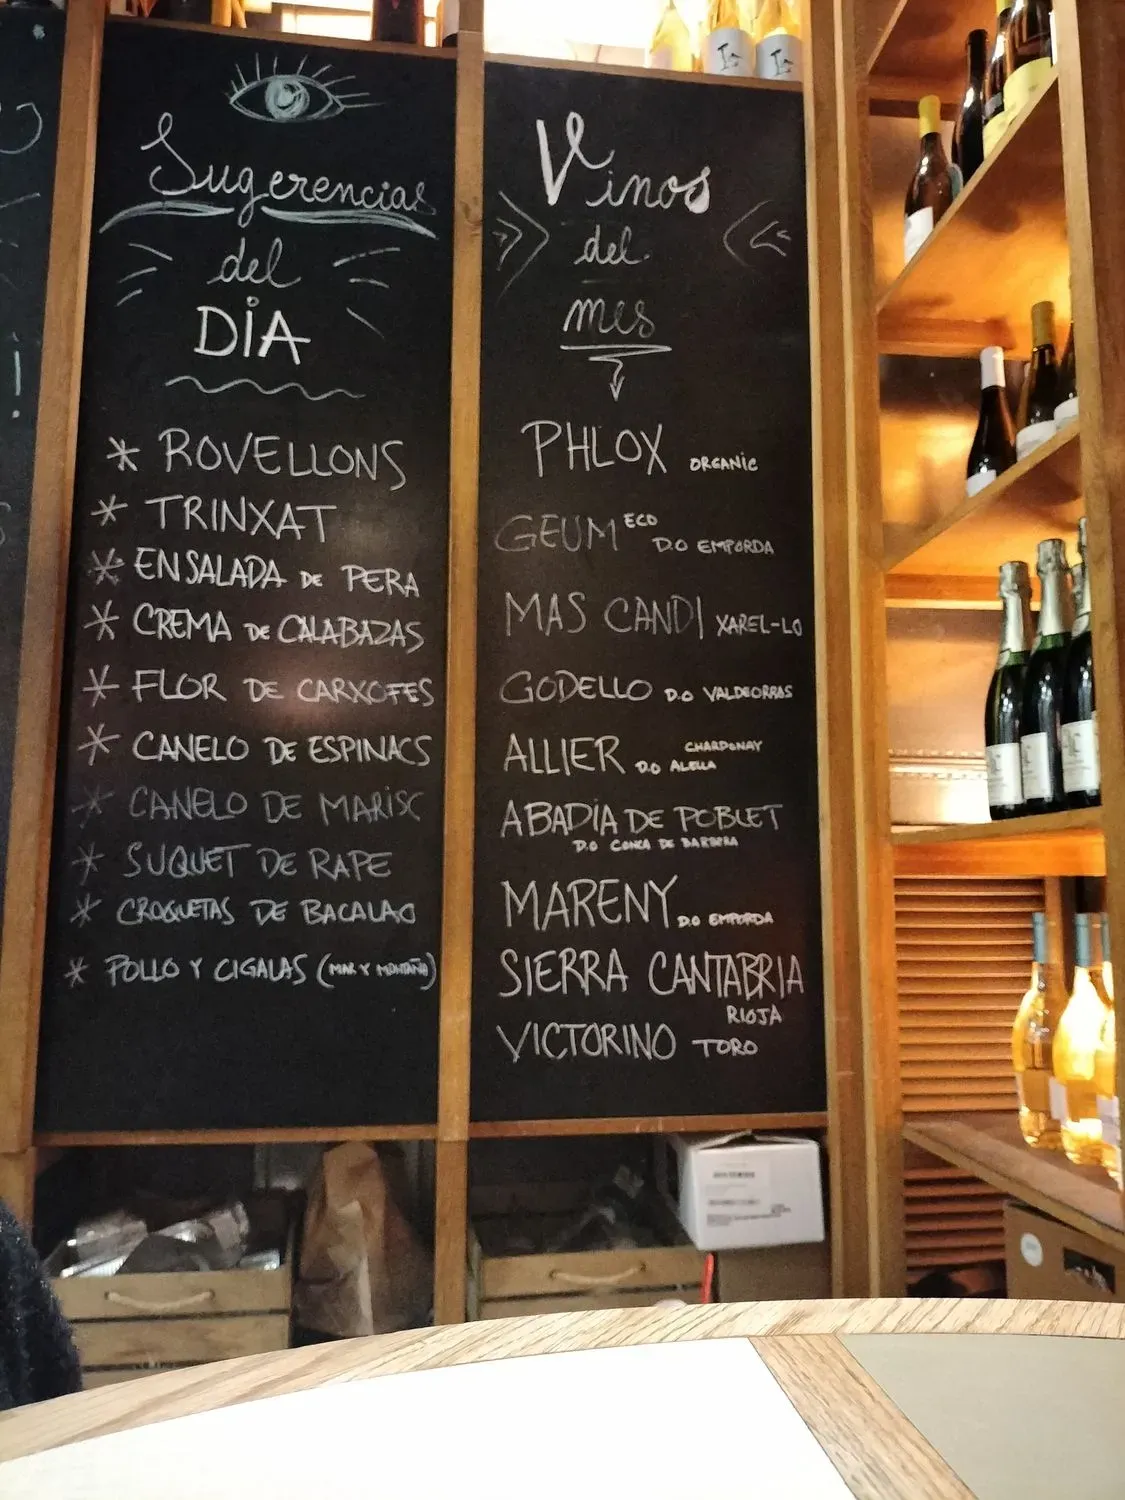 Sugerencias
del
DÍA
* ROVELLONS
* TRINXAT
* ENSALADA DE PERA
* CREMA DE CALABAZAS
* FLOR DE CARXOFES
* CANELO DE ESPINACS
* CANELO DE MARISC
* SUQUET DE RAPE
* CROQUETAS DE BACALAO
* POLLO Y CIGALAS (MAR Y MONTAÑA)
Vinos
del
mes
PHLOX ORGANIC
GEUM ECO
D.O EMPORDA
MAS CANDI XAREL-LO
GODELLO D.O VALDEORRAS
ALLIER CHARDONAY
D.O ALELLA
ABADÍA DE POBLET
D.O CONCA DE BARBERA
MARENY D.O EMPORDA
SIERRA CANTABRIA
RIOJA
VICTORINO TORO